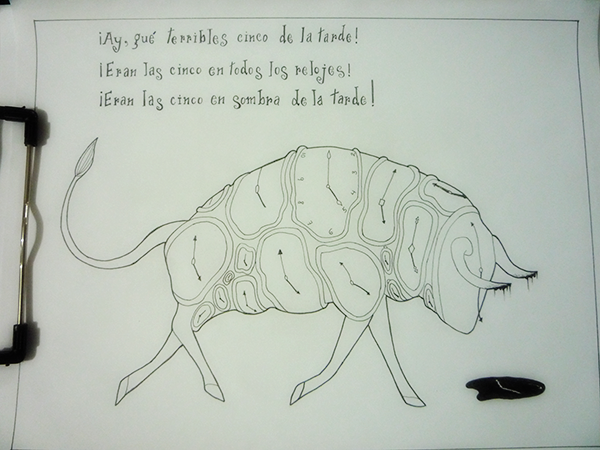 ¡Ay, qué terribles cinco de la tarde!
¡Eran las cinco en todos los relojes!
¡Eran las cinco en sombra de la tarde!